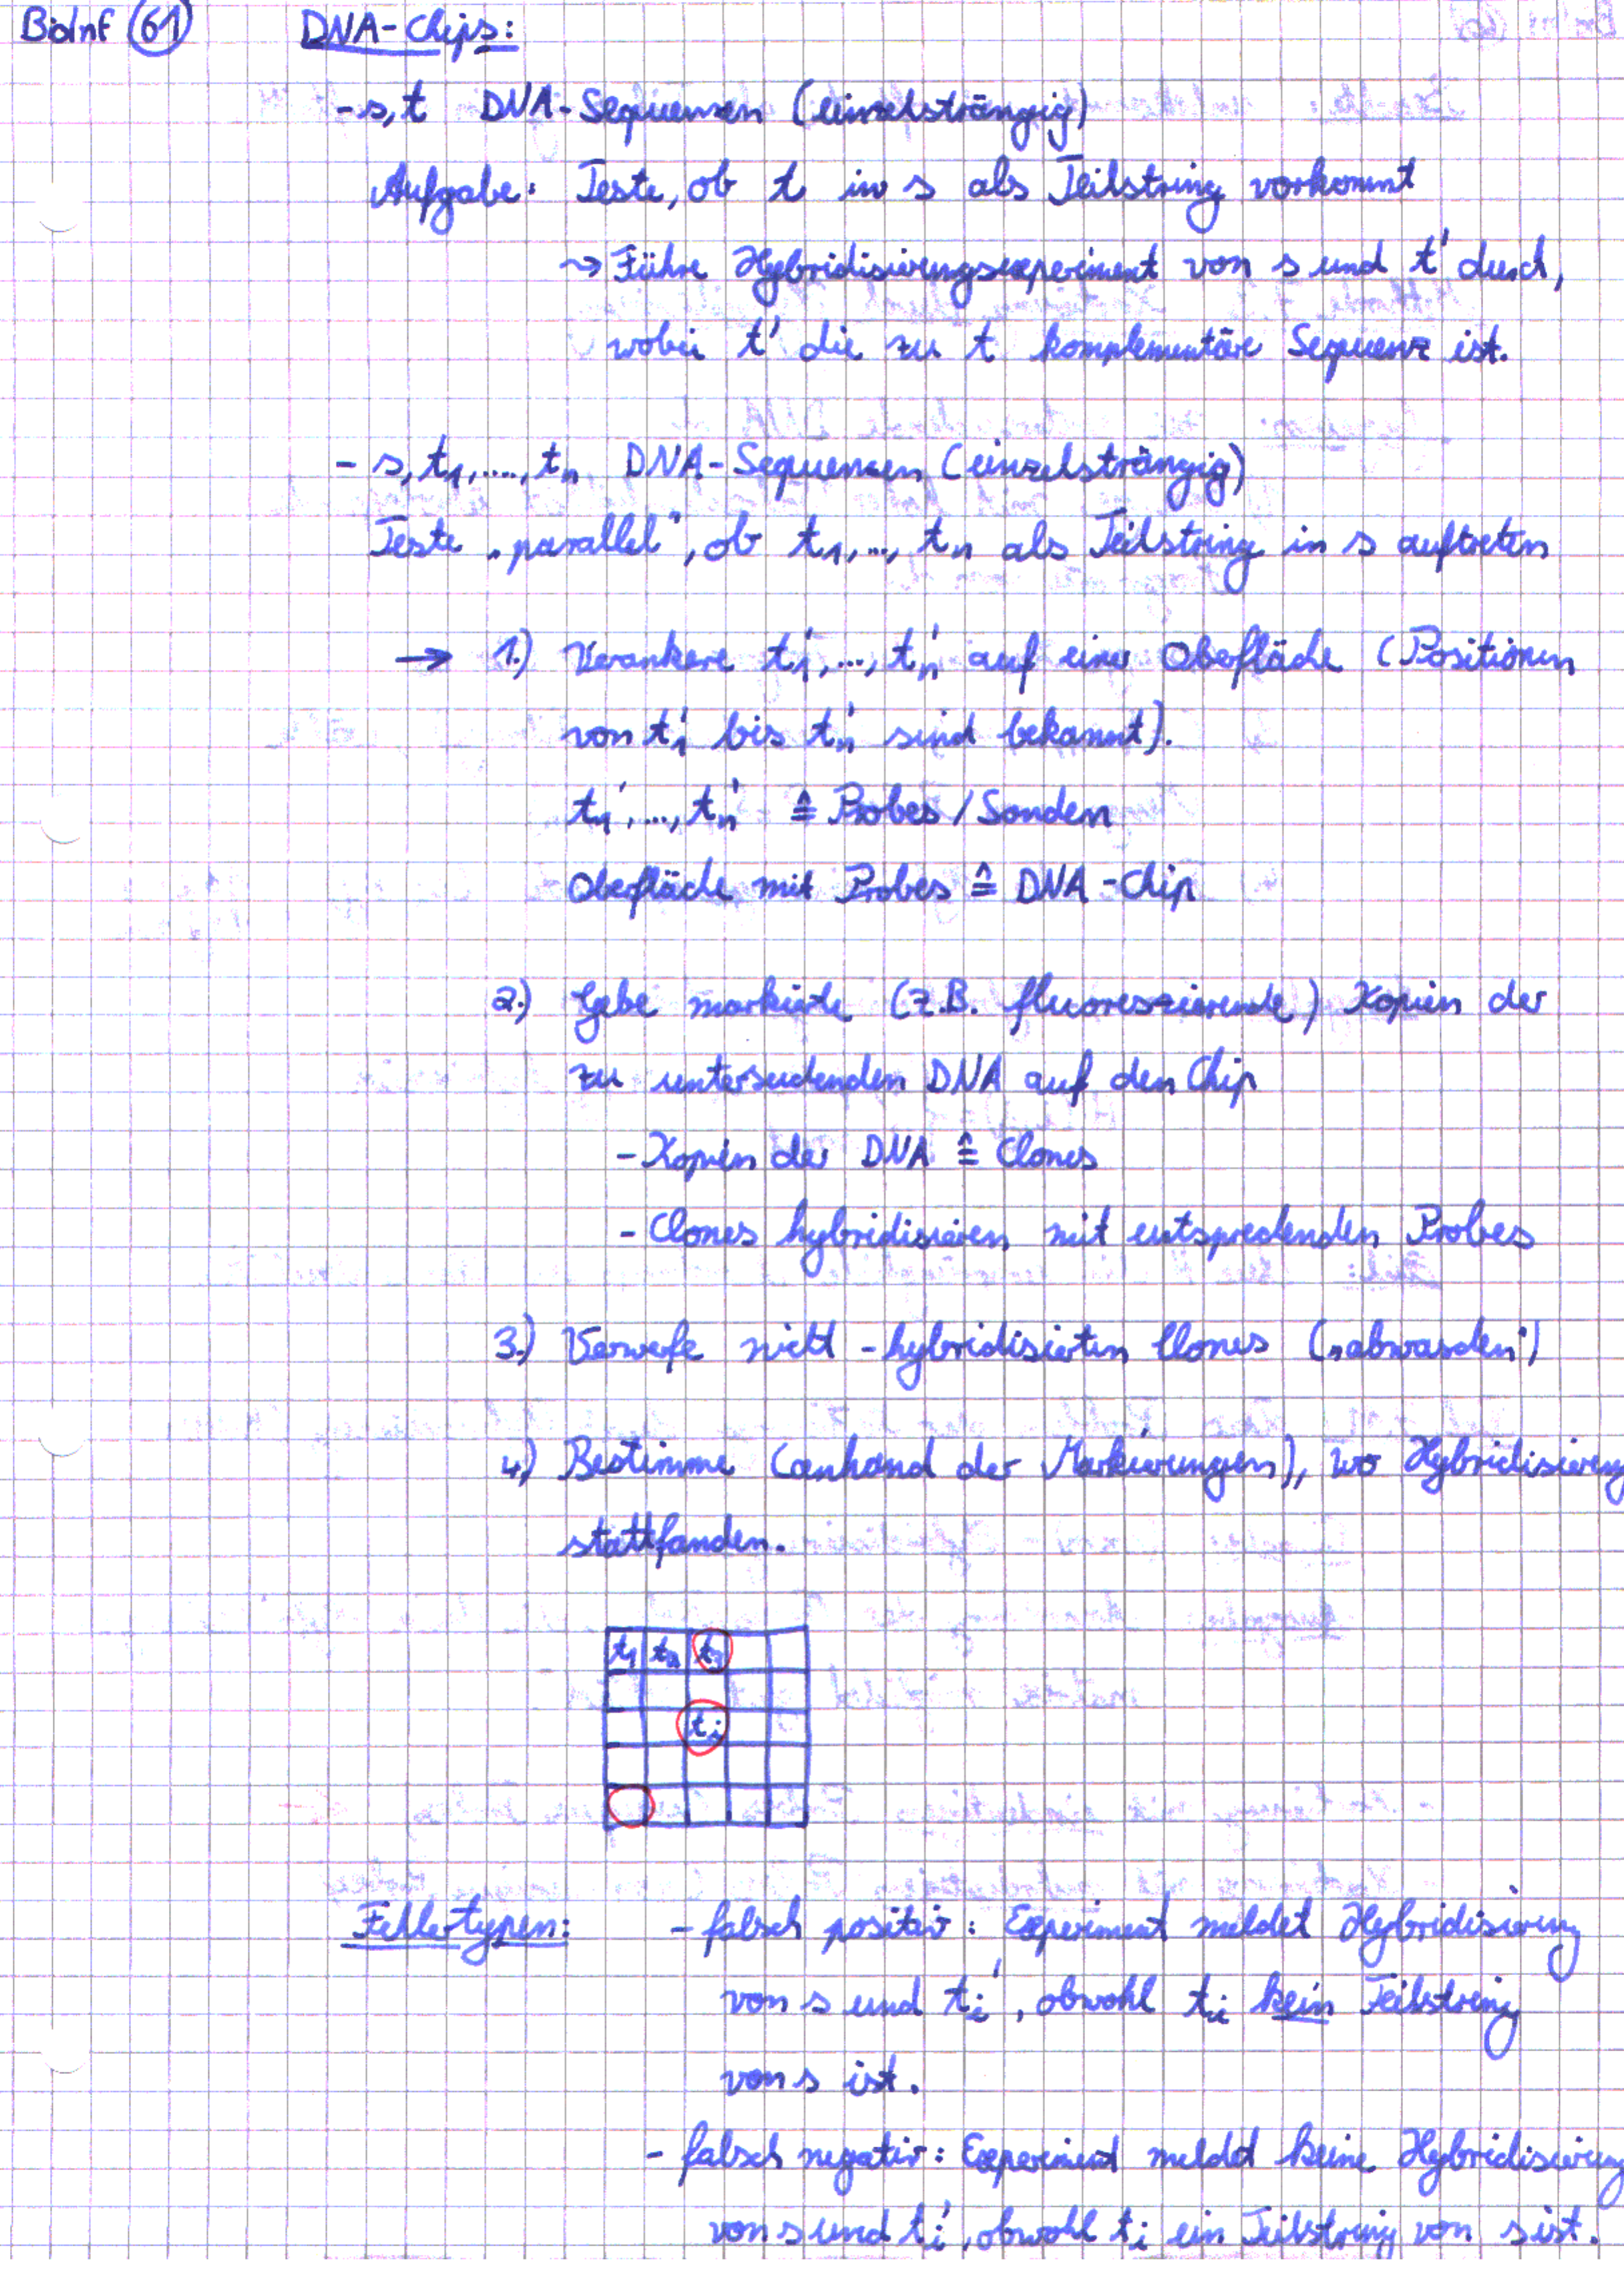 BoInf 61 DNA-Chips:
- s, t DNA-Sequenzen (einzelsträngig)
Aufgabe: Teste, ob t in s als Teilstring vorkommt
~> Führe Hybridisierungsexperiment von s und t' durch,
wobei t' die zu t komplementäre Sequenz ist.
- s, t₁, ...., tₙ DNA-Sequenzen (einzelsträngig)
Teste „parallel", ob t₁, ..., tₙ als Teilstring in s auftreten
→ 1.) Verankere t₁', ..., tₙ' auf einer Oberfläche (Positionen
von t₁' bis tₙ' sind bekannt).
t₁', ..., tₙ' ≙ Probes / Sonden
Oberfläche mit Probes ≙ DNA-Chip
2.) Gebe markierte (z.B. fluoreszierende) Kopien der
zu untersuchenden DNA auf den Chip
- Kopien der DNA ≙ Clones
- Clones hybridisieren mit entsprechenden Probes
3.) Verwerfe nicht-hybridisierten Clones („abwaschen")
4.) Bestimme (anhand der Markierungen), wo Hybridisierung
stattfanden.
t₁ t₂ t₃
tᵢ
Fehlertypen: - falsch positiv: Experiment meldet Hybridisierung
von s und tᵢ', obwohl tᵢ kein Teilstring
von s ist.
- falsch negativ: Experiment meldet keine Hybridisierung
von s und tᵢ', obwohl tᵢ ein Teilstring von s ist.